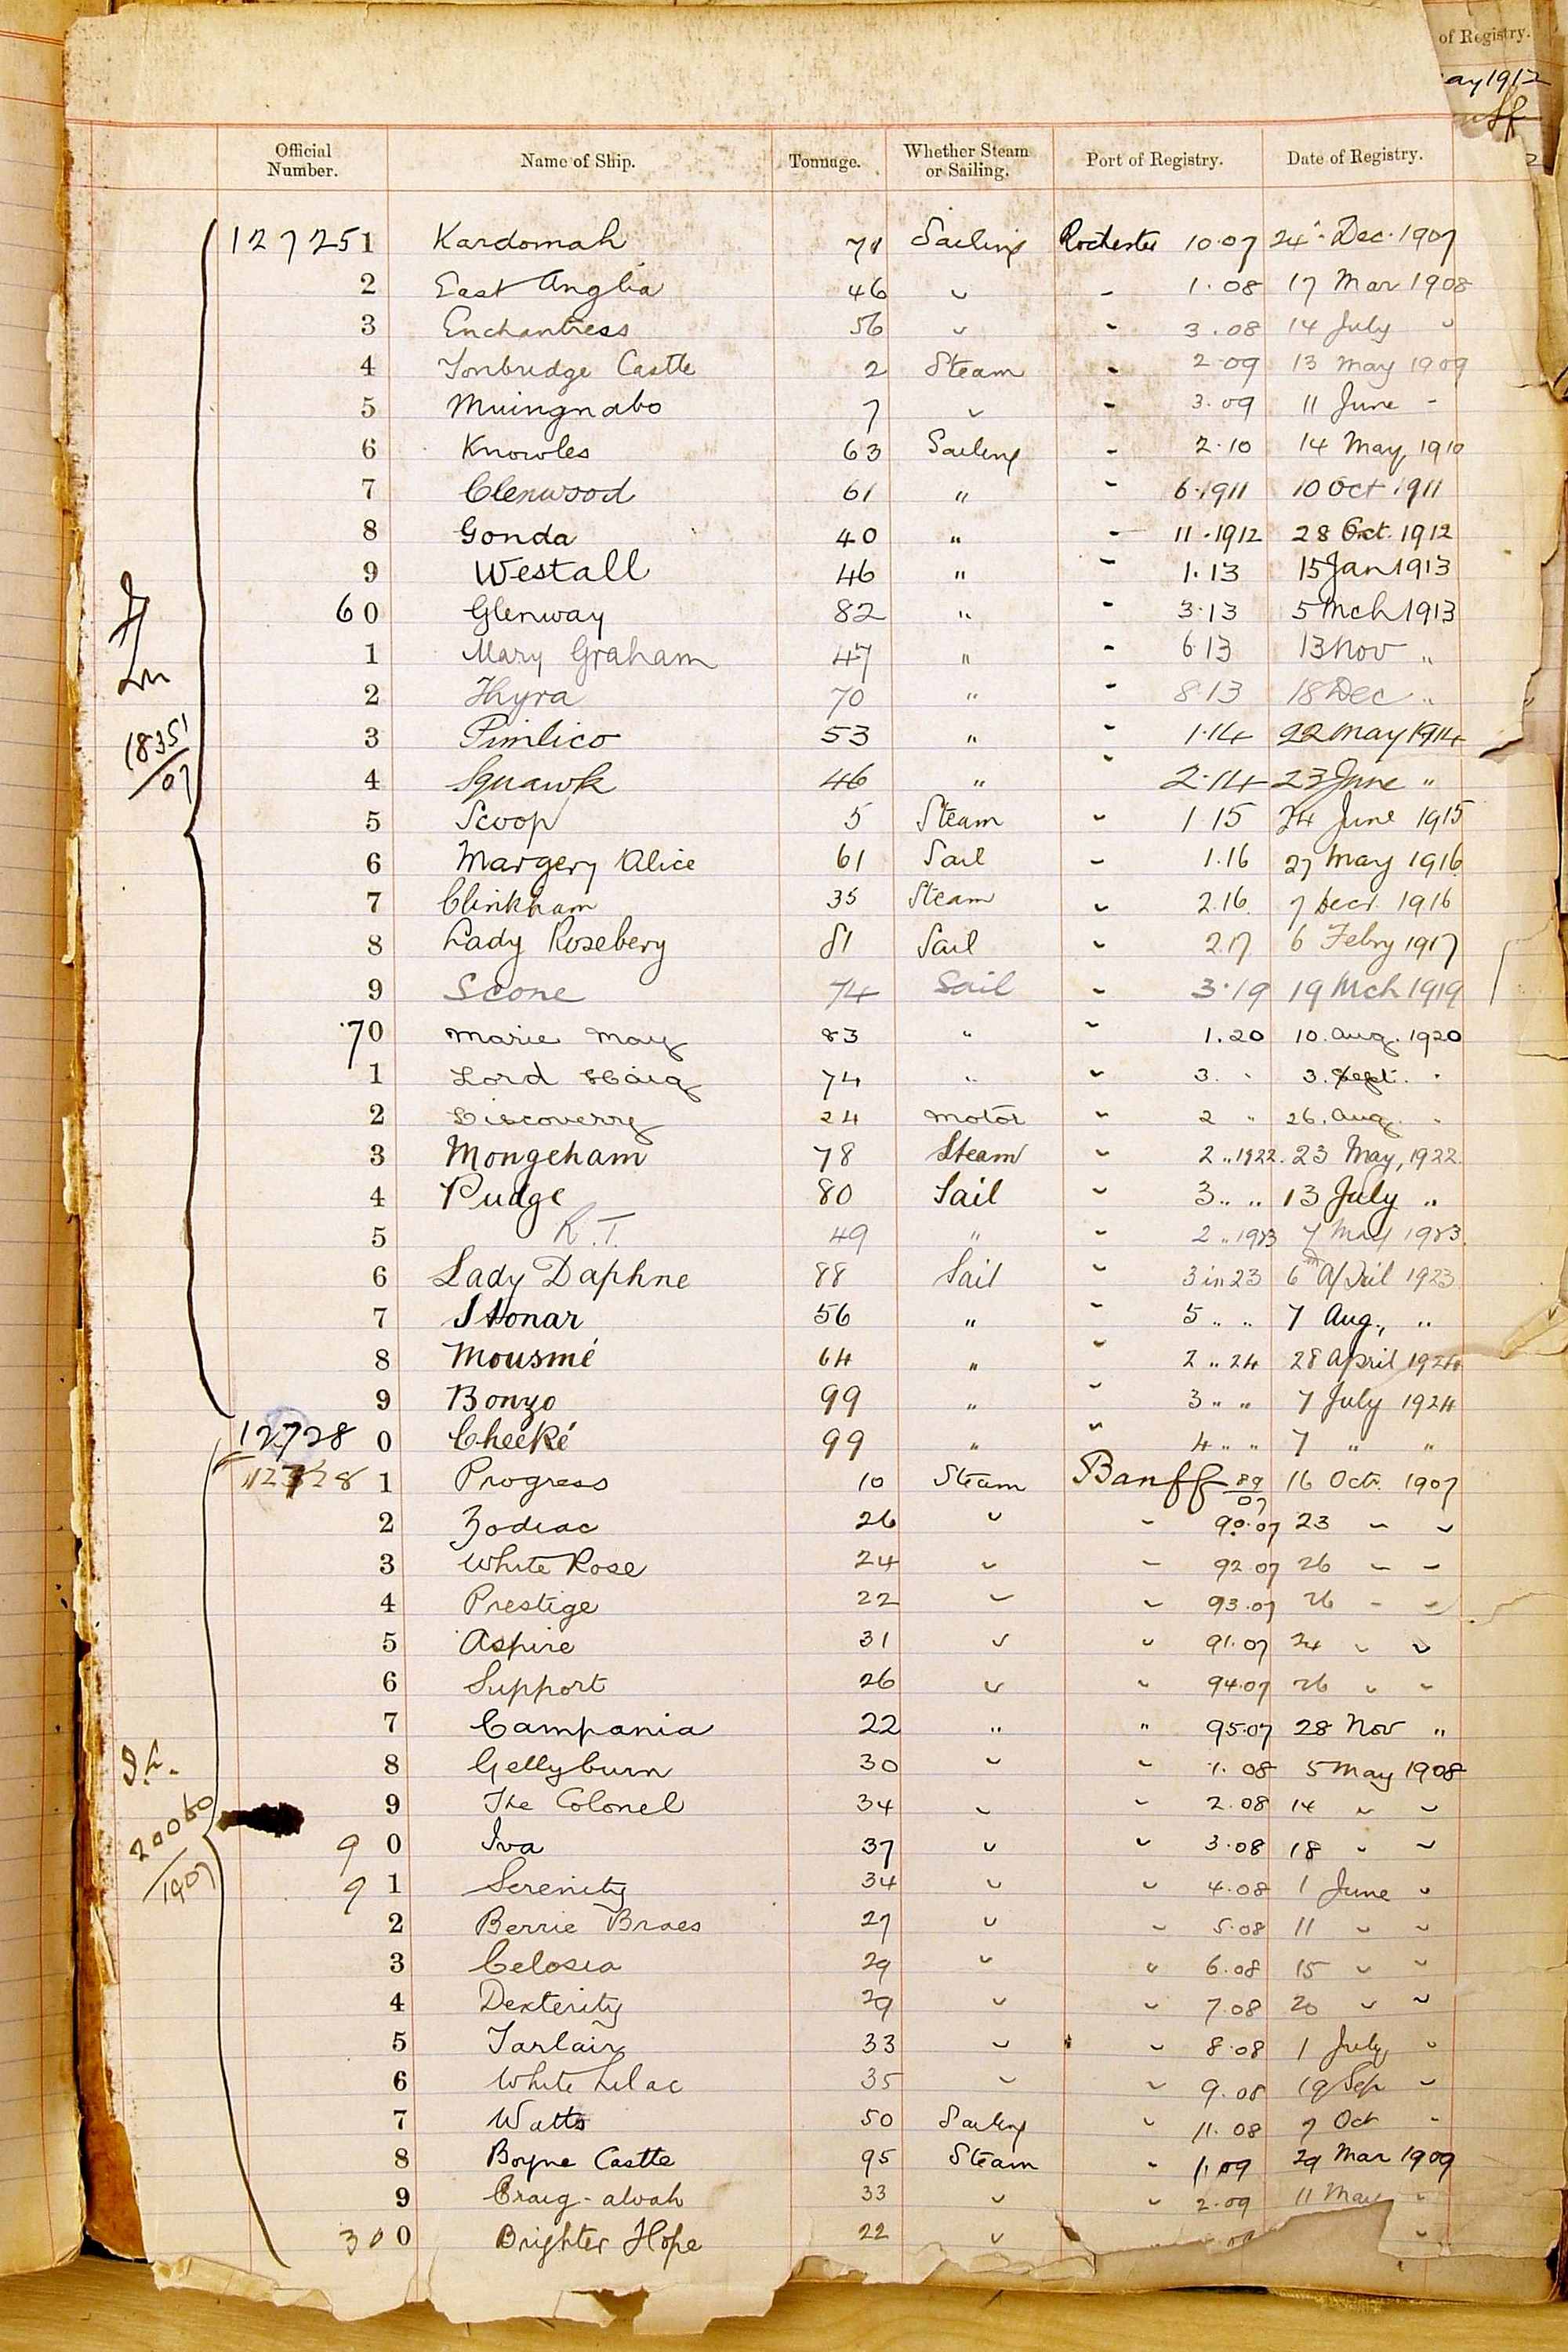 of Registry.
ay 1912
Official Number. Name of Ship. Tonnage. Whether Steam or Sailing. Port of Registry. Date of Registry.
127251 Kardomah 71 Sailing Rochester 10.07 24 Dec. 1907
2 East Anglia 46 " " 1.08 17 Mar 1908
3 Enchantress 56 " " 3.08 14 July "
4 Tonbridge Castle 2 Steam " 2.09 13 May 1909
5 Muingnabo 7 " " 3.09 11 June "
6 Knowles 63 Sailing " 2.10 14 May, 1910
7 Glenwood 61 " " 6.1911 10 Oct 1911
8 Gonda 40 " " 11.1912 28 Oct. 1912
9 Westall 46 " " 1.13 15 Jan 1913
60 Glenway 82 " " 3.13 5 Mch 1913
1 Mary Graham 47 " " 6.13 13 Nov "
2 Thyra 70 " " 8.13 18 Dec "
3 Pimlico 53 " " 1.14 22 May 1914
4 Squawk 46 " " 2.14 23 June "
18351/07
5 Scoop 5 Steam " 1.15 24 June 1915
6 Margery Alice 61 Sail " 1.16 27 May 1916
7 Clinkham 35 Steam " 2.16. 7 Decr. 1916
8 Lady Rosebery 81 Sail " 2.17 6 Febry 1917
9 Scone 74 Sail " 3.19 19 Mch 1919
70 Marie May 83 " " 1.20 10. Aug. 1920
1 Lord Haig 74 " " 3. " 3. Sept. "
2 Discoverry 24 Motor " 2 " 26. Aug. "
3 Mongeham 78 Steam " 2 .. 1922. 23 May, 1922.
4 Pudge 80 Sail " 3 .. .. 13 July "
5 R.T. 49 " " 2 .. 1923 7 May 1923.
6 Lady Daphne 88 Sail " 3 in 23 6th April 1923
7 Stonar 56 " " 5 .. .. 7 Aug., ..
8 Mousmé 64 " " 2 .. 24 28 April 1924
9 Bonzo 99 " " 3 " " 7 July 1924
127280 Cheeké 99 " " 4 .. .. 7 " "
127281 Progress 10 Steam Banff 89/07 16 Octr. 1907
2 Zodiac 26 " " 90.07 23 " "
3 White Rose 24 " " 92.07 26 " "
4 Prestige 22 " " 93.07 26 " "
5 Aspire 31 " " 91.07 24 " "
6 Support 26 " " 94.07 26 " "
7 Campania 22 " " 95.07 28 Nov "
8 Gellyburn 30 " " 1.08 5 May 1908
9 The Colonel 34 " " 2.08 14 " "
20060/1907
90 Iva 37 " " 3.08 18 " "
91 Serenity 34 " " 4.08 1 June "
2 Berrie Braes 27 " " 5.08 11 " "
3 Celosia 29 " " 6.08 15 " "
4 Dexterity 29 " " 7.08 20 " "
5 Tarlair 33 " " 8.08 1 July "
6 White Lilac 35 " " 9.08 19 Sep "
7 Watts 50 Sailing " 11.08 7 Oct "
8 Boyne Castle 95 Steam " 1.09 29 Mar 1909
9 Craig-alvah 33 " " 2.09 11 May "
300 Brighter Hope 22 " "